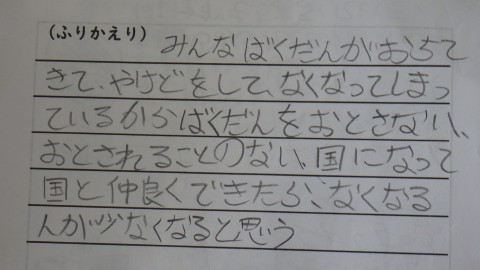 (ふりかえり) みんなばくだんがおちて
きて、やけどをして、なくなってしまっ
ているからばくだんをおとさない、
おとされることのない、国になって
国と仲良くできたら、なくなる
人が少なくなると思う